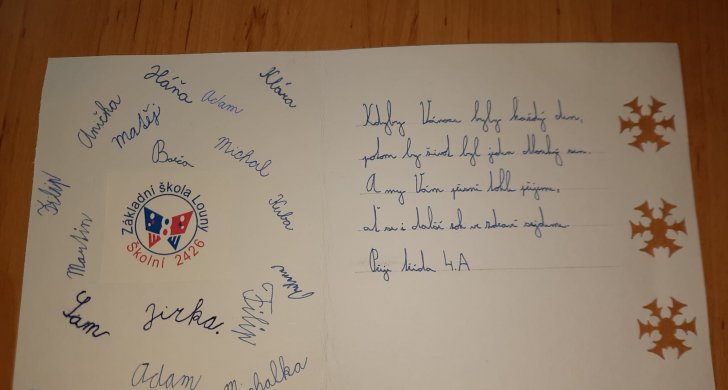 Klára
Háňa
Adam
Anička
Matěj
Michal
Filip
Kuba
Základní škola Louny
Školní 2426
Martin
Filip
Sam
Jirka.
Adam
Michalka
Kdyby Vánoce byly každý den,
potom by život byl jeden hezký sen.
A my Vám přesně tohle přejeme,
ať se i další rok ve zdraví sejdeme.
Přeje třída 4.A